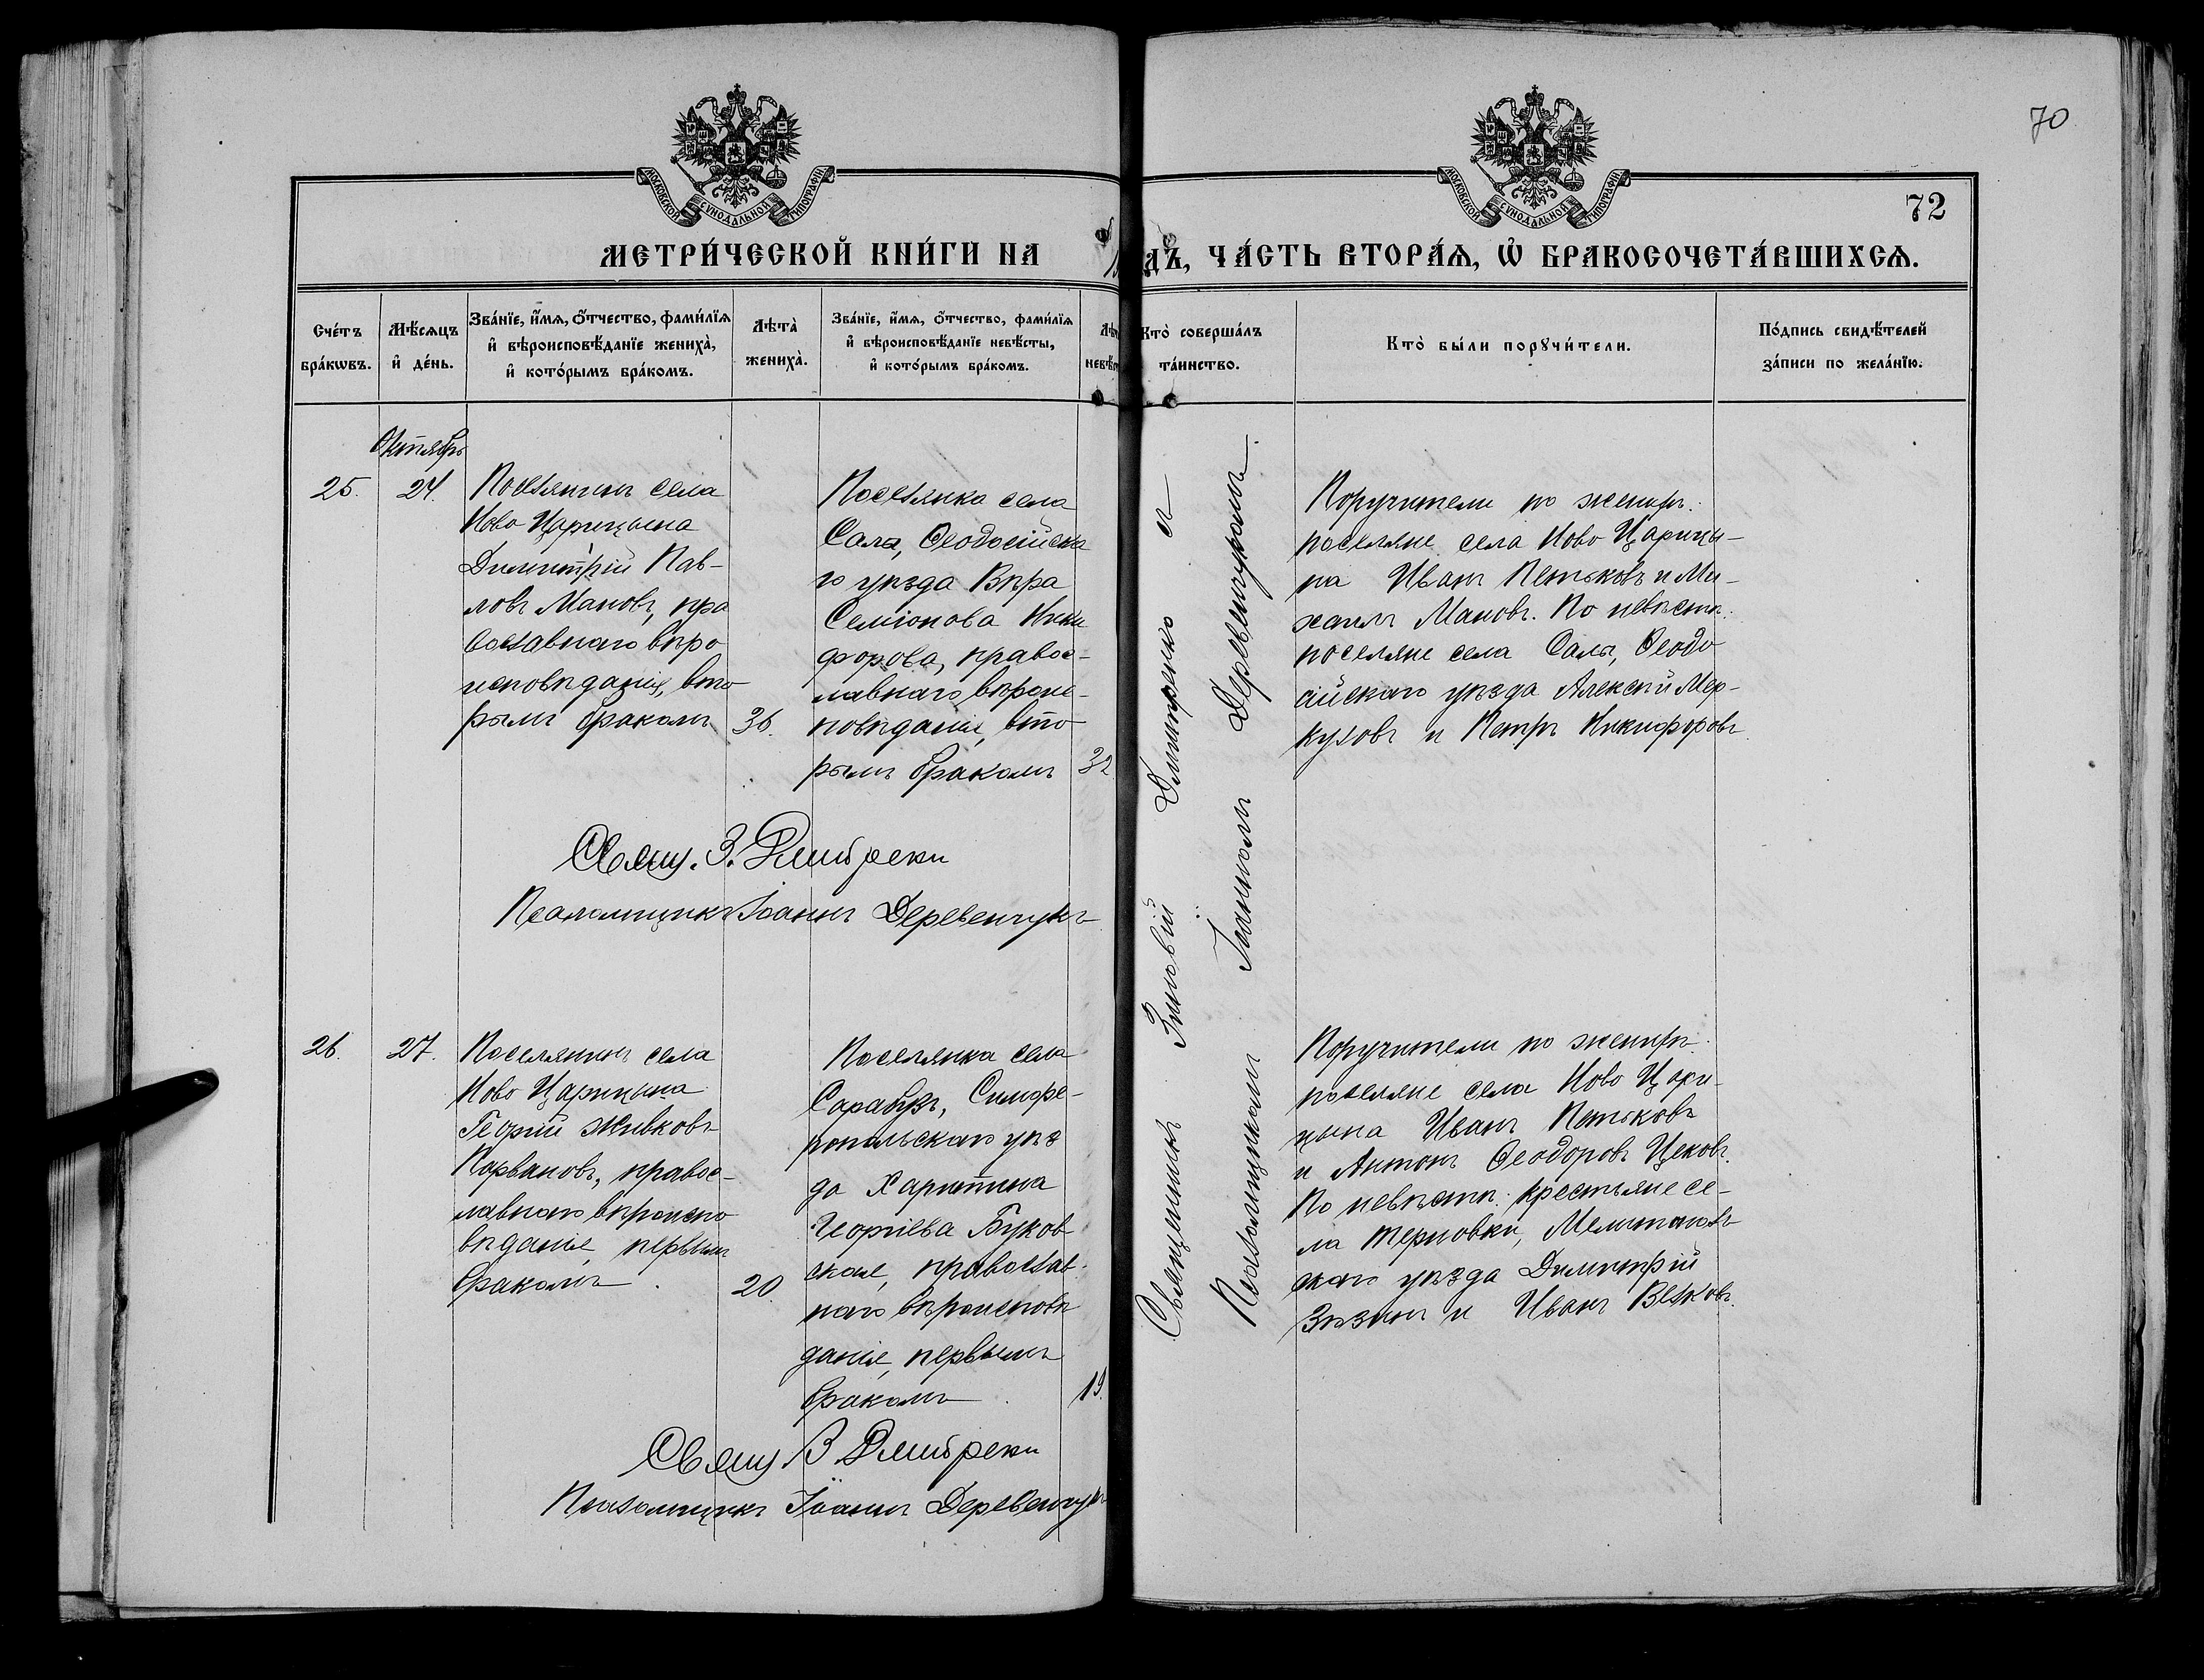 70
МОСКОВСКОЙ СѴНОДАЛЬНОЙ ТИПОГРАФІИ
МОСКОВСКОЙ СѴНОДАЛЬНОЙ ТИПОГРАФІИ
72
МЕТРИ́ЧЕСКОЙ КНИ́ГИ НА
ДЪ, ЧА́СТЬ ВТОРА́Ѧ, Ѡ҆ БРАКОСОЧЕТА́ВШИХСѦ.
Сче́тъ
бра́кѡвъ.
Мѣ́сѧцъ
и҆ де́нь.
Зва́нїе, и҆́мѧ, о҆́тчество, фами́лїѧ
и҆ вѣроисповѣ́данїе жениха̀,
и҆ кото́рымъ бра́комъ.
Лѣта̀
жениха̀.
Зва́нїе, и҆́мѧ, о҆́тчество, фами́лїѧ
и҆ вѣроисповѣ́данїе невѣ́сты,
и҆ кото́рымъ бра́комъ.
Лѣт
невѣ́с
Кто̀ соверша́лъ
та́инство.
Кто̀ бы́ли порꙋчи́тели.
По́дпись свидѣ́телей
за́писи по жела́нїю.
Октябрь
25.
24.
Поселянинъ села
Ново Царицына
Димитрій Пав-
ловъ Мановъ, пра
вославнаго вѣро
исповѣданія, вто
рымъ бракомъ
36.
Поселянка села
Салы, Ѳеодосійска
го уѣзда Вѣра
Семіонова Ники
форова, правос-
лавнаго вѣроис-
повѣданія, вто
рымъ бракомъ
32
Свящ. З. Дмитренки
Псаломщикъ Іоаннъ Деревенчукъ
Священникъ Зиновій Дмитренко и
Псаломщикомъ Іоанномъ Деревенчукомъ
Поручители по женихѣ:
поселяне села Ново Царицы-
на Иванъ Петьковъ и Ми-
хаилъ Мановъ. По невѣстѣ:
поселяне села Салы, Ѳеодо
сійскаго уѣзда Алексѣй Мер-
куловъ и Петръ Никифоровъ
26.
27.
Поселянинъ села
Ново Царицына
Георгій Живковъ
Парвановъ, правос-
лавнаго вѣроиспо
вѣданія, первымъ
бракомъ
20
Поселянка села
Сарабузъ, Симфе-
ропольскаго уѣз
да Харитина
Георгіева Буков-
ская, православ-
наго вѣроисповѣ
данія, первымъ
бракомъ
19.
Свящ. З Дмитренки
Псаломщикъ Іоаннъ Деревенчукъ
Поручители по женихѣ:
поселяне села Ново Цари-
цына Иванъ Петьковъ
и Антонъ Ѳеодоровъ Цековъ.
По невѣстѣ: крестьяне се-
ла Терновки, Мелитополь
скаго уѣзда Димитрій
и Иванъ Велковъ.